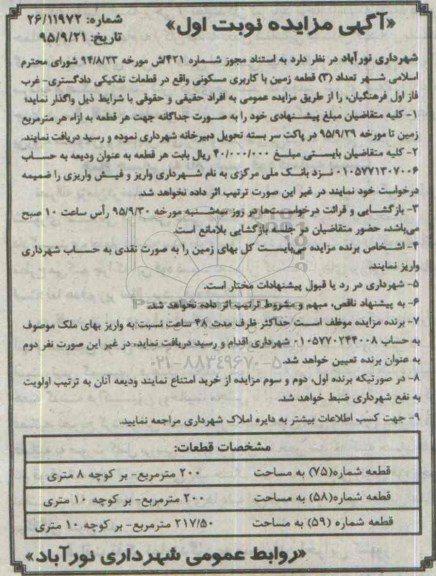 «آگهی مزایده نوبت اول»
شماره: ۲۶/۱۱۹۷۲
تاریخ: ۹۵/۹/۲۱
شهرداری نورآباد در نظر دارد به استناد مجوز شماره ۴۲۱/ش مورخه ۹۴/۸/۲۳ شورای محترم
اسلامی شهر تعداد (۳) قطعه زمین با کاربری مسکونی واقع در قطعات تفکیکی دادگستری- غرب
فاز اول فرهنگیان، را از طریق مزایده عمومی به افراد حقیقی و حقوقی با شرایط ذیل واگذار نماید:
۱- کلیه متقاضیان مبلغ پیشنهادی خود را به صورت جداگانه جهت هر قطعه به ازاء هر مترمربع
زمین تا مورخه ۹۵/۹/۲۹ در پاکت سر بسته تحویل دبیرخانه شهرداری نموده و رسید دریافت نمایند.
۲- کلیه متقاضیان بایستی مبلغ ۴۰/۰۰۰/۰۰۰ ریال بابت هر قطعه به عنوان ودیعه به حساب
۰۱۰۵۷۷۱۳۰۷۰۰۶ نزد بانک ملی مرکزی به نام شهرداری واریز و فیش واریزی را ضمیمه
درخواست خود نمایند در غیر این صورت ترتیب اثر داده نخواهد شد.
۳- بازگشایی و قرائت درخواست‌ها در روز سه‌شنبه مورخه ۹۵/۹/۳۰ رأس ساعت ۱۰ صبح
می‌باشد، حضور متقاضیان در جلسه بازگشایی بلامانع است.
۴- اشخاص برنده مزایده می‌بایست کل بهای زمین را به صورت نقدی به حساب شهرداری
واریز نمایند.
۵- شهرداری در رد یا قبول پیشنهادات مختار است.
۶- به پیشنهاد ناقص، مبهم و مشروط ترتیب اثر داده نخواهد شد.
۷- برنده مزایده موظف است حداکثر ظرف مدت ۴۸ ساعت نسبت به واریز بهای ملک موصوف
به حساب ۰۱۰۵۷۷۰۲۴۴۰۰۸ شهرداری اقدام و رسید دریافت نماید، در غیر این صورت نفر دوم
به عنوان برنده تعیین خواهد شد.
۸- در صورتیکه برنده اول، دوم و سوم مزایده از خرید امتناع نمایند ودیعه آنان به ترتیب اولویت
به نفع شهرداری ضبط خواهد شد.
۹- جهت کسب اطلاعات بیشتر به دایره املاک شهرداری مراجعه نمایید.
مشخصات قطعات:
قطعه شماره(۷۵) به مساحت ۲۰۰ مترمربع- بر کوچه ۸ متری
قطعه شماره(۵۸) به مساحت ۲۰۰ مترمربع- بر کوچه ۱۰ متری
قطعه شماره (۵۹) به مساحت ۲۱۷/۵۰ مترمربع- بر کوچه ۱۰ متری
«روابط عمومی شهرداری نورآباد»